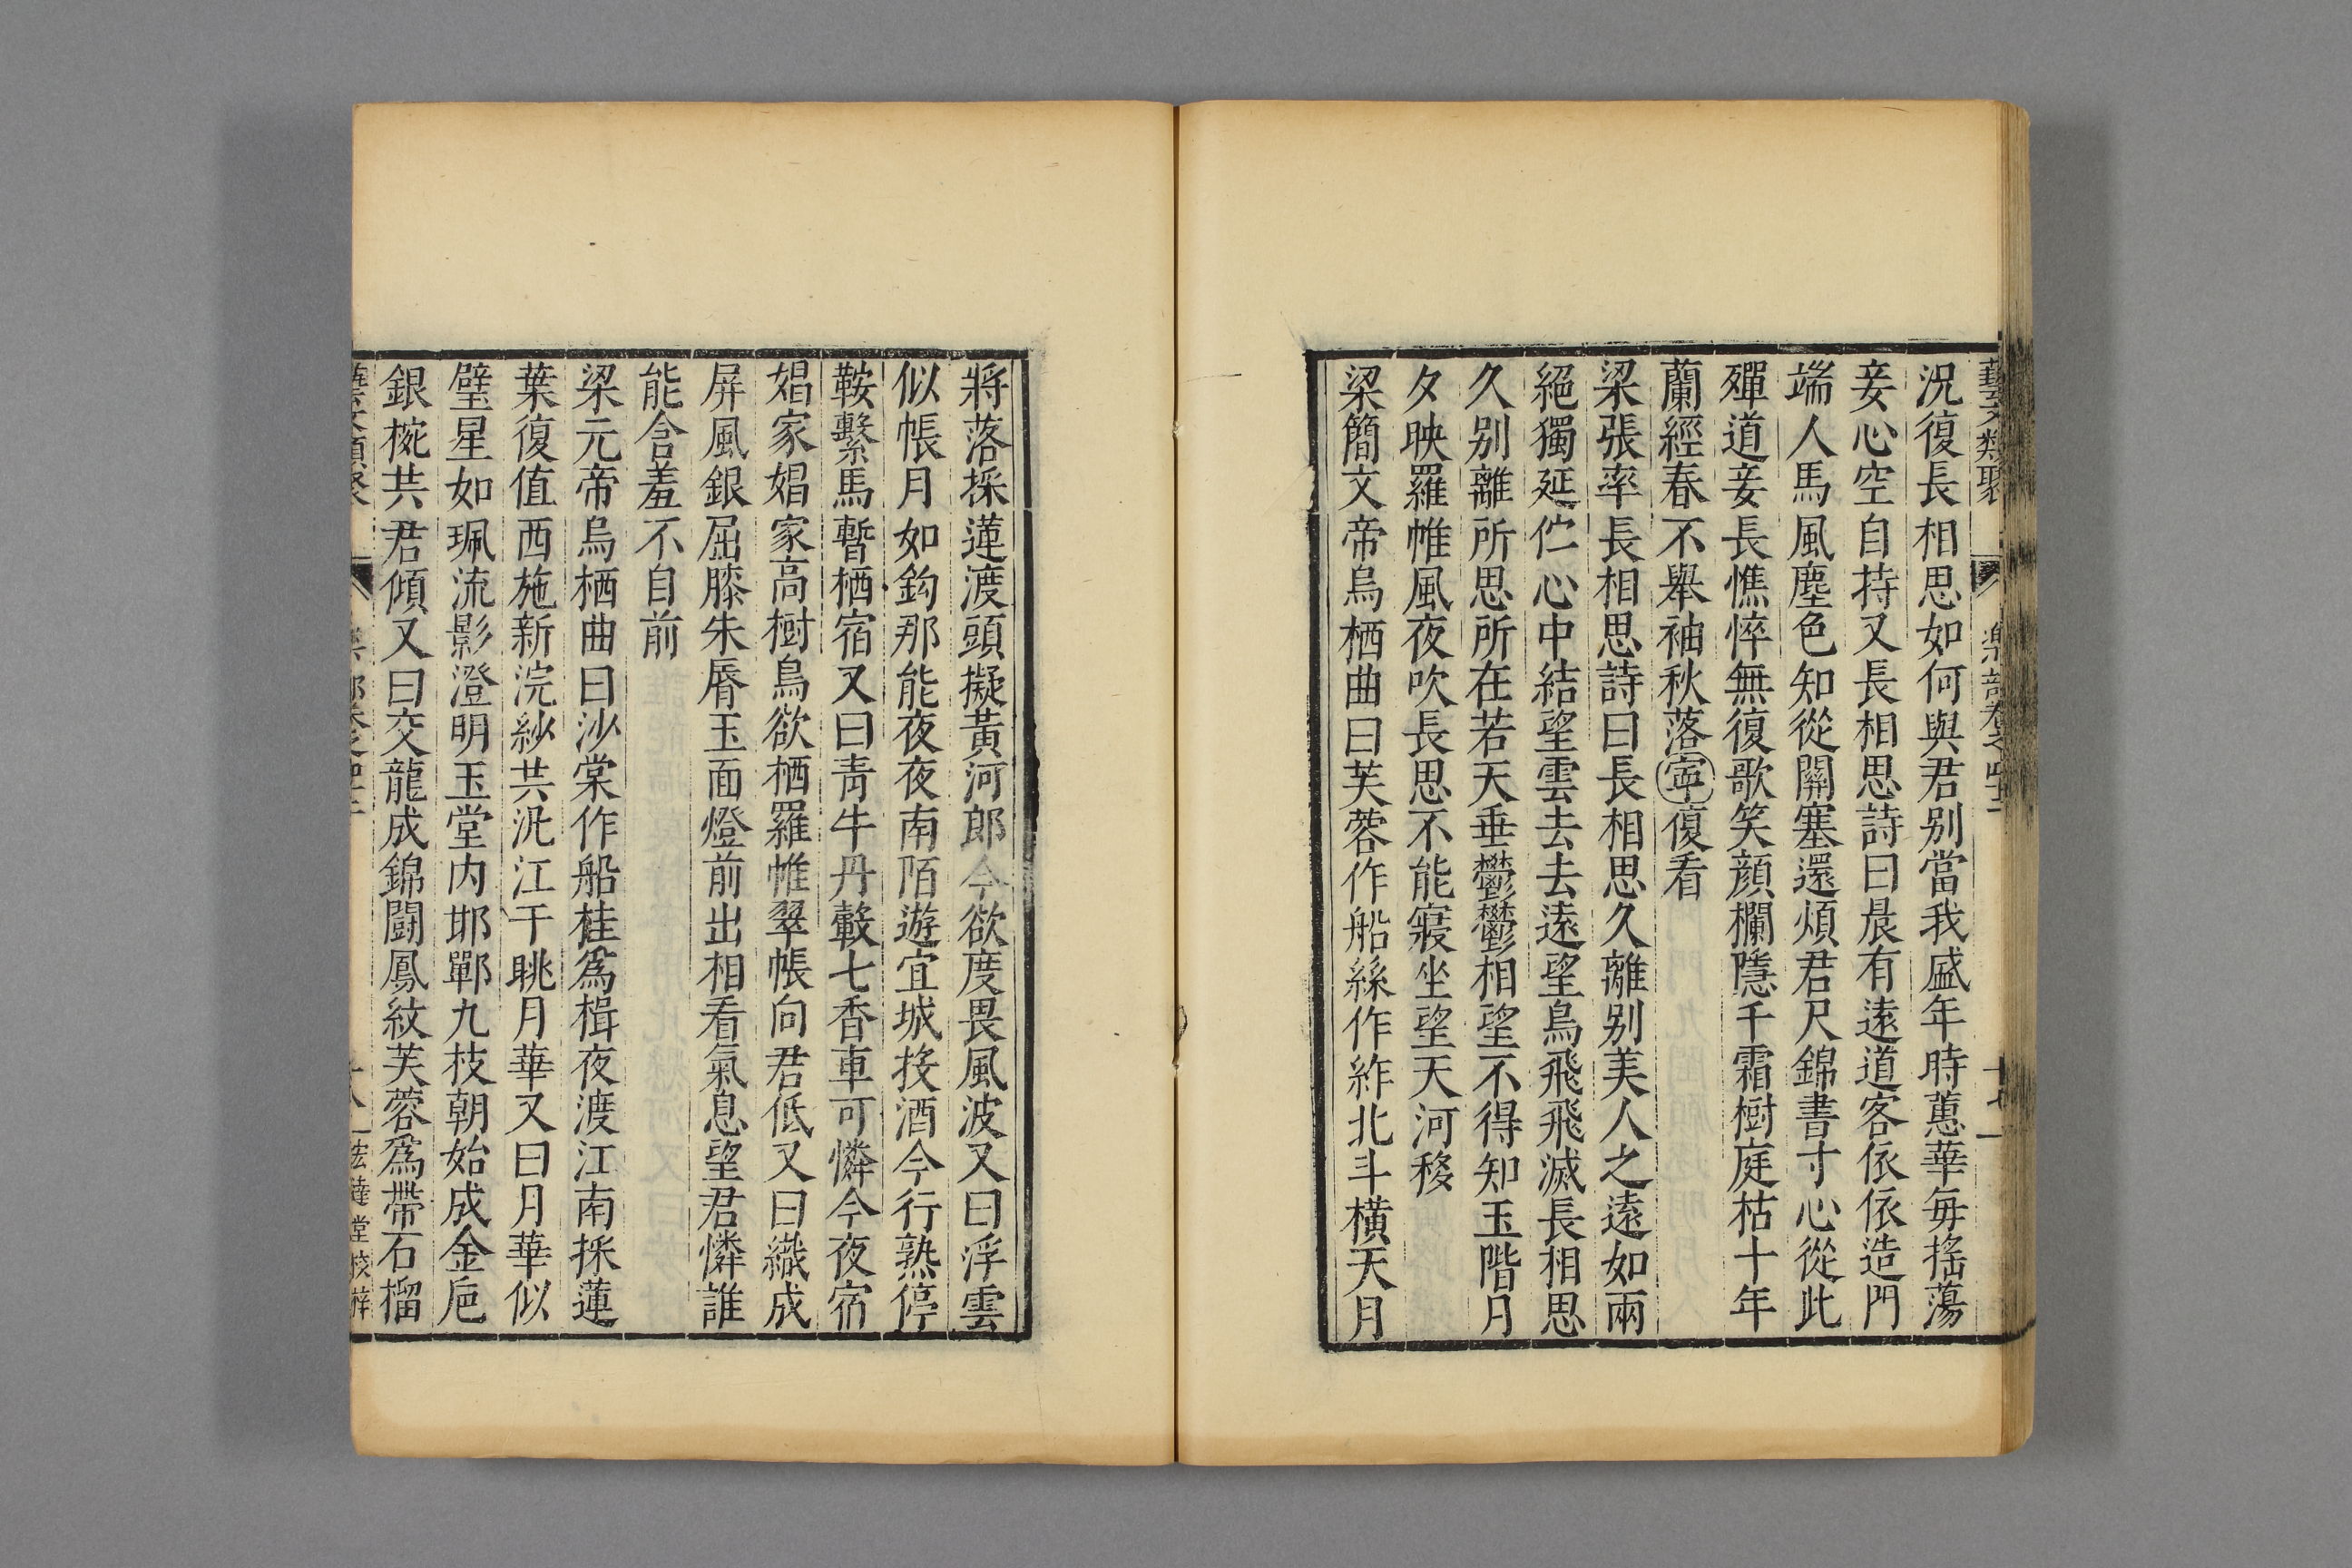 藝文類聚 樂部卷之四十二 十七
況復長相思如何與君别當我盛年時蕙華毎搖蕩
妾心空自持又長相思詩曰晨有遠道客依依造門
端人馬風塵色知從關塞還煩君尺錦書寸心從此
殫道妾長憔悴無復歌笑顔欄隱千霜樹庭枯十年
蘭經春不舉袖秋落寜復看
梁張率長相思詩曰長相思久離别美人之遠如兩
絕獨延佇心中結望雲去去遠望鳥飛飛滅長相思
久别離所思所在若天垂鬱鬱相望不得知玉階月
夕映羅帷風夜吹長思不能寢坐望天河移
梁簡文帝烏栖曲曰芙蓉作船絲作㡸北斗横天月
將落採蓮渡頭擬黄河郎今欲度畏風波又曰浮雲
似帳月如鈎那能夜夜南陌遊宜城投酒今行熟停
鞍繫馬暫栖宿又曰青牛丹轂七香車可憐今夜宿
娼家娼家高樹烏欲栖羅帷翠帳向君低又曰織成
屏風銀屈膝朱脣玉面燈前出相看氣息望君憐誰
能含羞不自前
梁元帝烏栖曲曰沙棠作船桂爲楫夜渡江南採蓮
葉復值西施新浣紗共汎江干眺月華又曰月華似
璧星如珮流影澄明玉堂内邯鄲九枝朝始成金巵
銀椀共君傾又曰交龍成錦闘鳳紋芙蓉爲帶石榴
藝文類聚 樂部卷之四十二 十八 宏達堂校梓